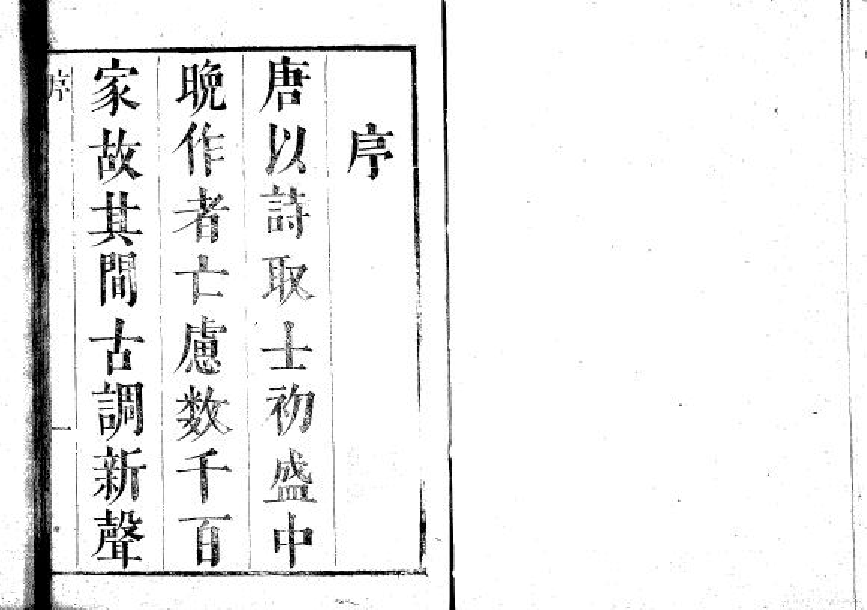 序
唐以詩取士初盛中
晚作者亡慮数千百
家故其間古調新聲
序
一